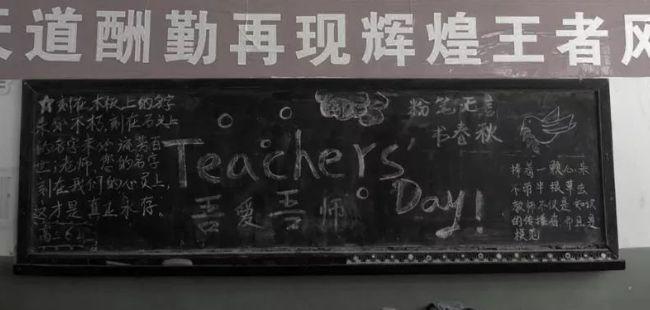 天道酬勤再现辉煌王者风
☆刻在木板上的名字
未必不朽,刻在石头上
的名字未必流芳百
世;老师,您的名字
刻在我们的心灵上,
这才是真正永存。
高二6
Teachers'
Day!
吾爱吾师
粉笔无言
书春秋
捧着一颗心来
不带半根草去
教师不仅是知识
的传播者,而且是
模范